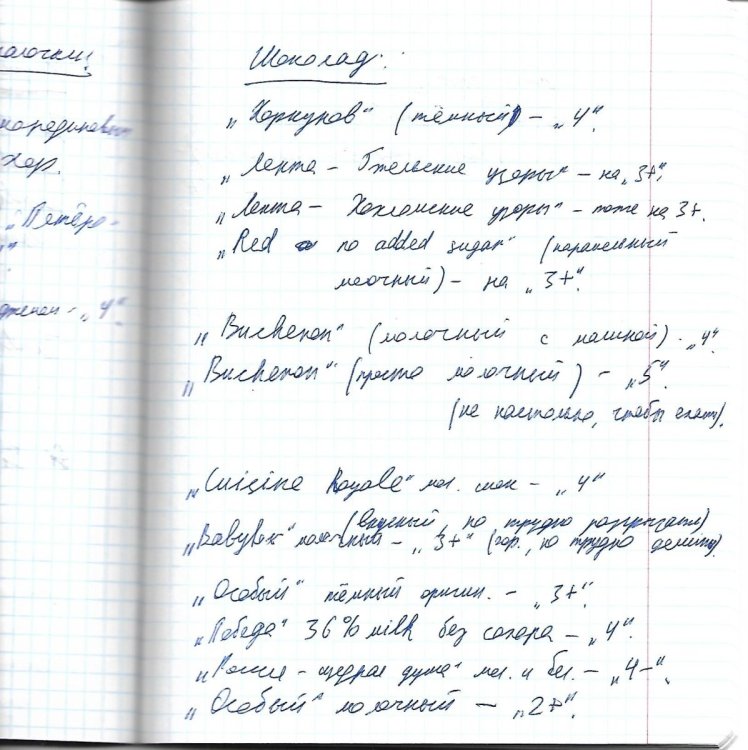 Шоколад:
„Коркунов“ (тёмный) – „4“.
„Лента – Гжельские узоры“ – на „3+“.
„Лента – Хохломские узоры“ – тоже на 3+.
„Red no added sugar“ (карамельный
молочный) – на „3+“.
„Bucheron“ (молочный с малиной) – „4“.
„Bucheron“ (просто молочный) – „5“.
(не настолько, чтобы ехать).
„Cuisine Royale“ мол. шок – „4“
(вкусный, но трудно разгрызать)
молочный – „3+“ (гор., но трудно делить).
„Особый“ тёмный оригин. – „3+“.
„Победа“ 36% milk без сахара – „4“.
„Россия – щедрая душа“ мол. и бел. – „4–“.
„Особый“ молочный – „2+“.
хор.
„Петёро-
– „4“.